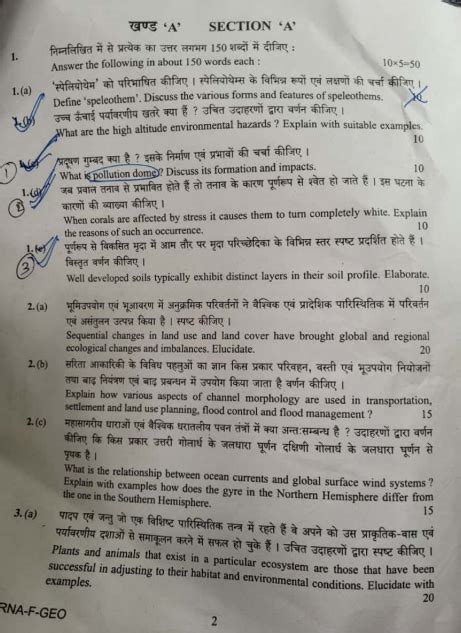 खण्ड 'A' SECTION 'A'
1. निम्नलिखित में से प्रत्येक का उत्तर लगभग 150 शब्दों में दीजिए :
Answer the following in about 150 words each : 10×5=50
1.(a) 'स्पेलियोथेम' को परिभाषित कीजिए । स्पेलियोथेम्स के विभिन्न रूपों एवं लक्षणों की चर्चा कीजिए ।
Define 'speleothem'. Discuss the various forms and features of speleothems. 10
1.(b) उच्च ऊँचाई पर्यावरणीय खतरे क्या हैं ? उचित उदाहरणों द्वारा वर्णन कीजिए ।
What are the high altitude environmental hazards ? Explain with suitable examples.
10
1.(c) प्रदूषण गुम्बद क्या है ? इसके निर्माण एवं प्रभावों की चर्चा कीजिए ।
1 What is pollution dome ? Discuss its formation and impacts. 10
1.(d) जब प्रवाल तनाव से प्रभावित होते हैं तो तनाव के कारण पूर्णरूप से श्वेत हो जाते हैं । इस घटना के
2 कारणों की व्याख्या कीजिए ।
When corals are affected by stress it causes them to turn completely white. Explain
the reasons of such an occurrence. 10
1.(e) पूर्णरूप से विकसित मृदा में आम तौर पर मृदा परिच्छेदिका के विभिन्न स्तर स्पष्ट प्रदर्शित होते हैं ।
3 विस्तृत वर्णन कीजिए ।
Well developed soils typically exhibit distinct layers in their soil profile. Elaborate.
10
2.(a) भूमिउपयोग एवं भूआवरण में अनुक्रमिक परिवर्तनों ने वैश्विक एवं प्रादेशिक पारिस्थितिक में परिवर्तन
एवं असंतुलन उत्पन्न किया है । स्पष्ट कीजिए ।
Sequential changes in land use and land cover have brought global and regional
ecological changes and imbalances. Elucidate. 20
2.(b) सरिता आकारिकी के विविध पहलुओं का ज्ञान किस प्रकार परिवहन, बस्ती एवं भूउपयोग नियोजनों
तथा बाढ़ नियंत्रण एवं बाढ़ प्रबन्धन में उपयोग किया जाता है वर्णन कीजिए ।
Explain how various aspects of channel morphology are used in transportation,
settlement and land use planning, flood control and flood management ? 15
2.(c) महासागरीय धाराओं एवं वैश्विक धरातलीय पवन तंत्रों में क्या अन्त:सम्बन्ध है ? उदाहरणों द्वारा वर्णन
कीजिए कि किस प्रकार उत्तरी गोलार्ध के जलधारा घूर्णन दक्षिणी गोलार्ध के जलधारा घूर्णन से
पृथक है ।
What is the relationship between ocean currents and global surface wind systems ?
Explain with examples how does the gyre in the Northern Hemisphere differ from
the one in the Southern Hemisphere. 15
3.(a) पादप एवं जन्तु जो एक विशिष्ट पारिस्थितिक तन्त्र में रहते हैं वे अपने को उस प्राकृतिक-वास एवं
पर्यावरणीय दशाओं से समाकूलन करने में सफल हो चुके हैं । उचित उदाहरणों द्वारा स्पष्ट कीजिए ।
Plants and animals that exist in a particular ecosystem are those that have been
successful in adjusting to their habitat and environmental conditions. Elucidate with
examples. 20
RNA-F-GEO 2